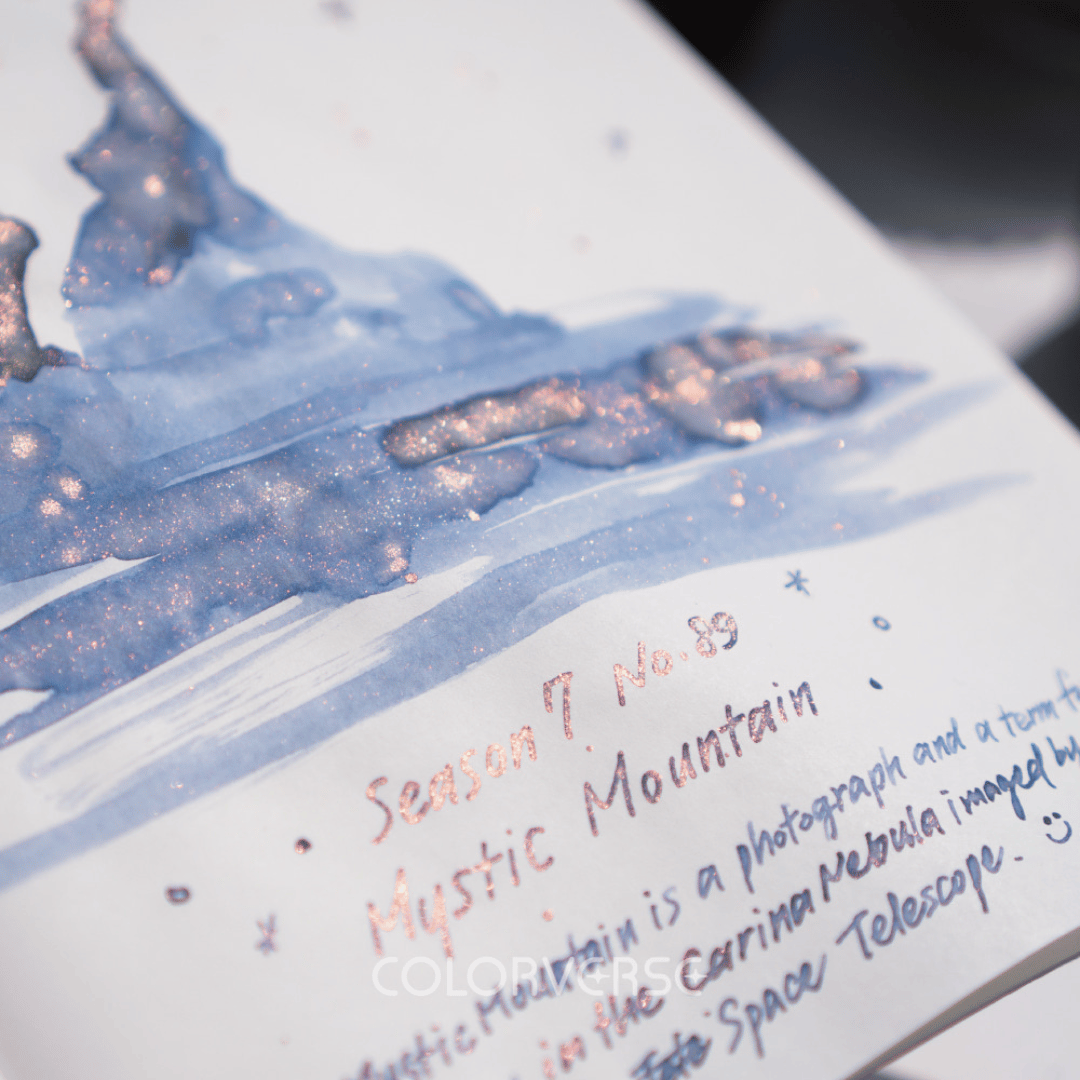 Season 7 No.89
Mystic Mountain
Mystic Mountain is a photograph and a term
in the Carina Nebula imaged by
Space Telescope.
COLORVERSE